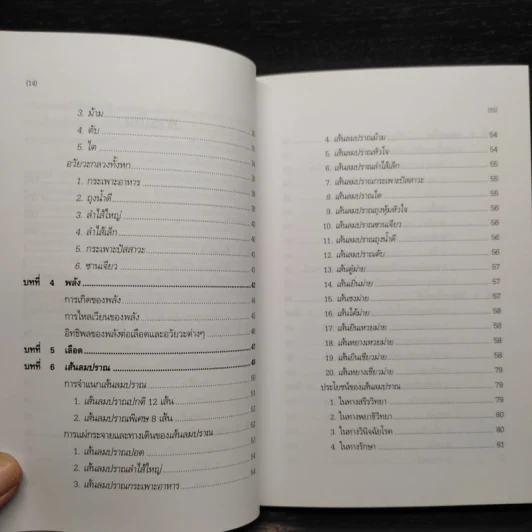 (14)
3. ม้าม
4. ตับ
5. ไต
อวัยวะกลวงทั้งหก
1. กระเพาะอาหาร
2. ถุงน้ำดี
3. ลำไส้ใหญ่
4. ลำไส้เล็ก
5. กระเพาะปัสสาวะ
6. ซานเจียว
บทที่ 4 พลัง
การเกิดของพลัง
การไหลเวียนของพลัง
อิทธิพลของพลังต่อเลือดและอวัยวะต่างๆ
บทที่ 5 เลือด
บทที่ 6 เส้นลมปราณ
การจำแนกเส้นลมปราณ
1. เส้นลมปราณปกติ 12 เส้น
2. เส้นลมปราณพิเศษ 8 เส้น
การแผ่กระจายและทางเดินของเส้นลมปราณ
1. เส้นลมปราณปอด
2. เส้นลมปราณลำไส้ใหญ่
3. เส้นลมปราณกระเพาะอาหาร
4. เส้นลมปราณม้าม 54
5. เส้นลมปราณหัวใจ 54
6. เส้นลมปราณลำไส้เล็ก 55
7. เส้นลมปราณกระเพาะปัสสาวะ 55
8. เส้นลมปราณไต 55
9. เส้นลมปราณถุงหุ้มหัวใจ 56
10. เส้นลมปราณซานเจียว 56
11. เส้นลมปราณถุงน้ำดี 56
12. เส้นลมปราณตับ 56
13. เส้นตู๋ม่าย 57
14. เส้นเยิ่นม่าย 57
15. เส้นชงม่าย 57
16. เส้นไต้ม่าย 58
17. เส้นยินเหวยม่าย 58
18. เส้นหยางเหวยม่าย 58
19. เส้นยินเชียวม่าย 58
20. เส้นหยางเชียวม่าย 79
ประโยชน์ของเส้นลมปราณ 79
1. ในทางสรีรวิทยา 79
2. ในทางพยาธิวิทยา 80
3. ในทางวินิจฉัยโรค 80
4. ในทางรักษา 81